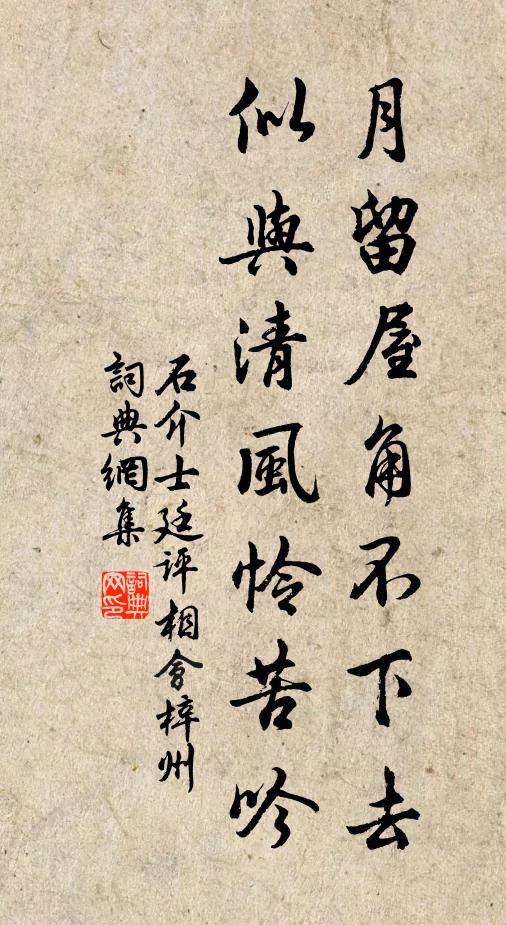 月留屋角不下去
似與清風憐苦吟
石介士廷評相會梓州
詞典網集
詞典網印